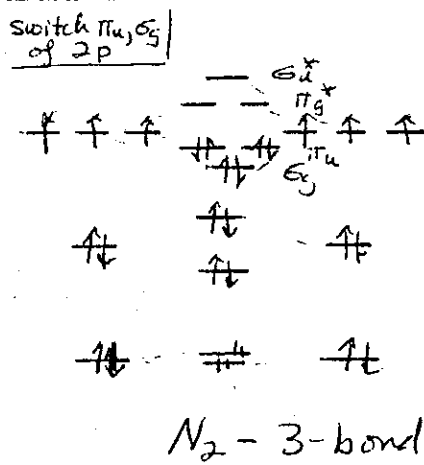 switch πu, σg
of 2p
σu*
πg*
πu
σg
N2 - 3-bond